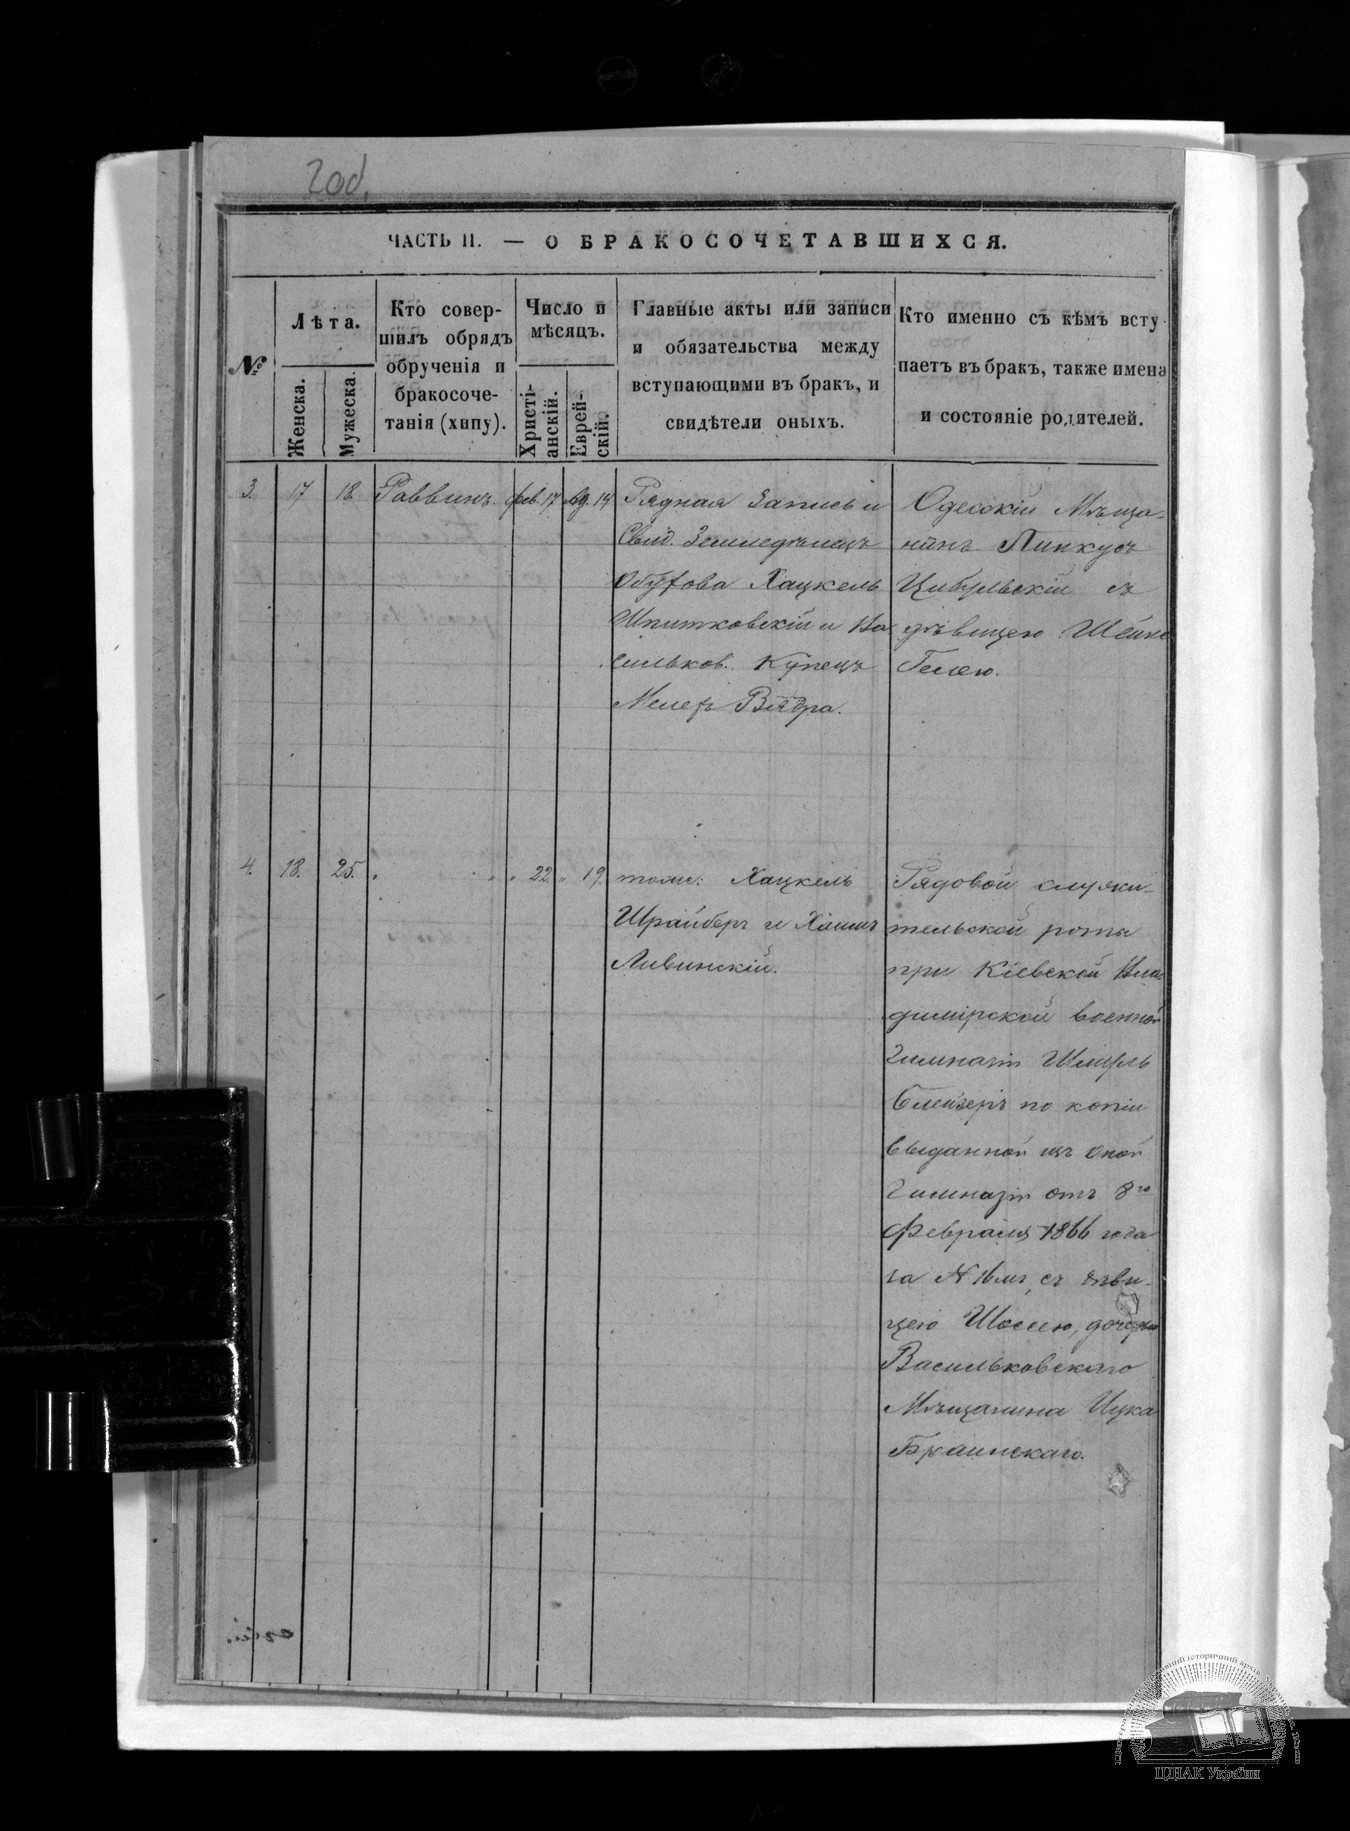 год.
ЧАСТЬ II. — О БРАКОСОЧЕТАВШИХСЯ.
№
Лѣта.
Женска.
Мужеска.
Кто совер-
шилъ обрядъ
обрученія и
бракосоче-
танія (хипу).
Число и
мѣсяцъ.
Христі-
анскій.
Еврей-
скій.
Главные акты или записи
и обязательства между
вступающими въ бракъ, и
свидѣтели оныхъ.
Кто именно съ кѣмъ всту
паетъ въ бракъ, также имена
и состояніе родителей.
3. 17 18. Раввинъ. фев. 17 Ад. 14
Рядная Запись и
Свид. Земледѣлецъ
Обухова Хацкель
Шпитковскій и Ва
сильков. Купецъ
Мелехъ Вядра.
Одесскій Мѣща-
нинъ Пинкусъ
Цибульскій съ
дѣвицею Шейне
Гелею.
4. 18. 25. " " " 22. " 19.
тоже: Хацкель
Шрайберъ и Хаимъ
Ливинскій.
Рядовой служи-
тельской роты
при Кіевской Вла-
димірской военной
Гимназіи Шмуль
Блейзеръ по копіи
выданной изъ оной
Гимназіи отъ 8го
Февраля 1866 года
за № съ дѣви-
цею Шосею, дочерью
Васильковскаго
Мѣщанина Ицка
Браинскаго.
ЦДІАК України